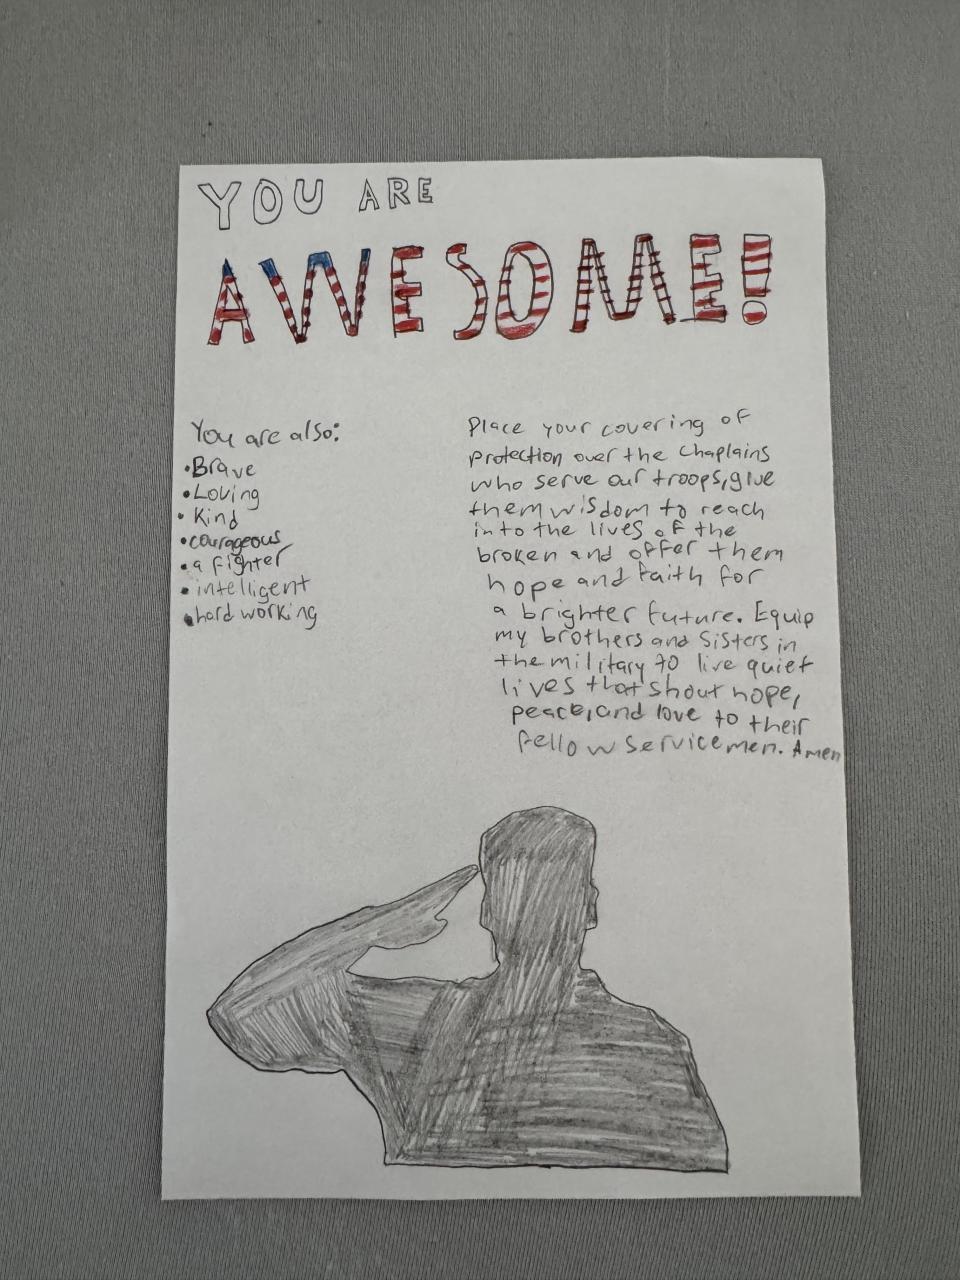 YOU ARE
AWESOME!
You are also:
•Brave
•Loving
•Kind
•courageous
•a fighter
•intelligent
•hard working
Place your covering of
protection over the chaplains
who serve our troops, give
them wisdom to reach
into the lives of the
broken and offer them
hope and faith for
a brighter future. Equip
my brothers and sisters in
the military to live quiet
lives that shout hope,
peace, and love to their
fellow servicemen. Amen